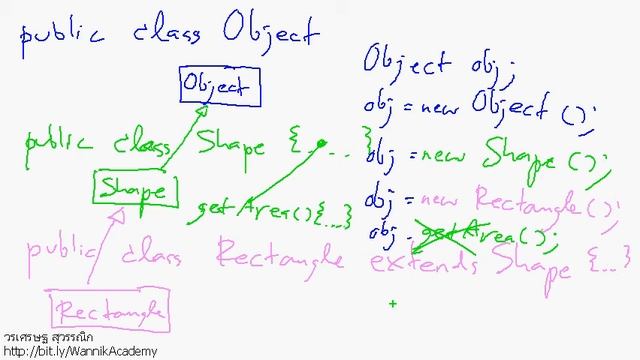 public class Object
Object
public class Shape {...}
Shape
getArea(){...}
public class Rectangle extends Shape {...}
Rectangle
Object obj;
obj = new Object ();
obj = new Shape ();
obj = new Rectangle ();
obj. getArea();
วรเศรษฐ สุวรรณิก
http://bit.ly/WannikAcademy